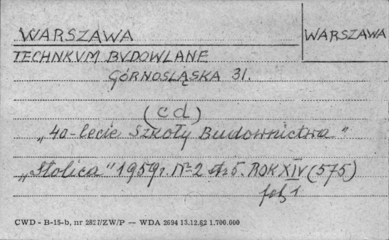 WARSZAWA
WARSZAWA
TECHNKUM BUDOWLANE
GÓRNOŚLĄSKA 31.
(cd)
„40-lecie Szkoły Budownictwa"
„Stolica" 1959r. Nº2 str 5. ROK XIV (575)
fot 1
CWD - B-15-b, nr 2827/ZW/P — WDA 2694 13.12.62 1.700.000